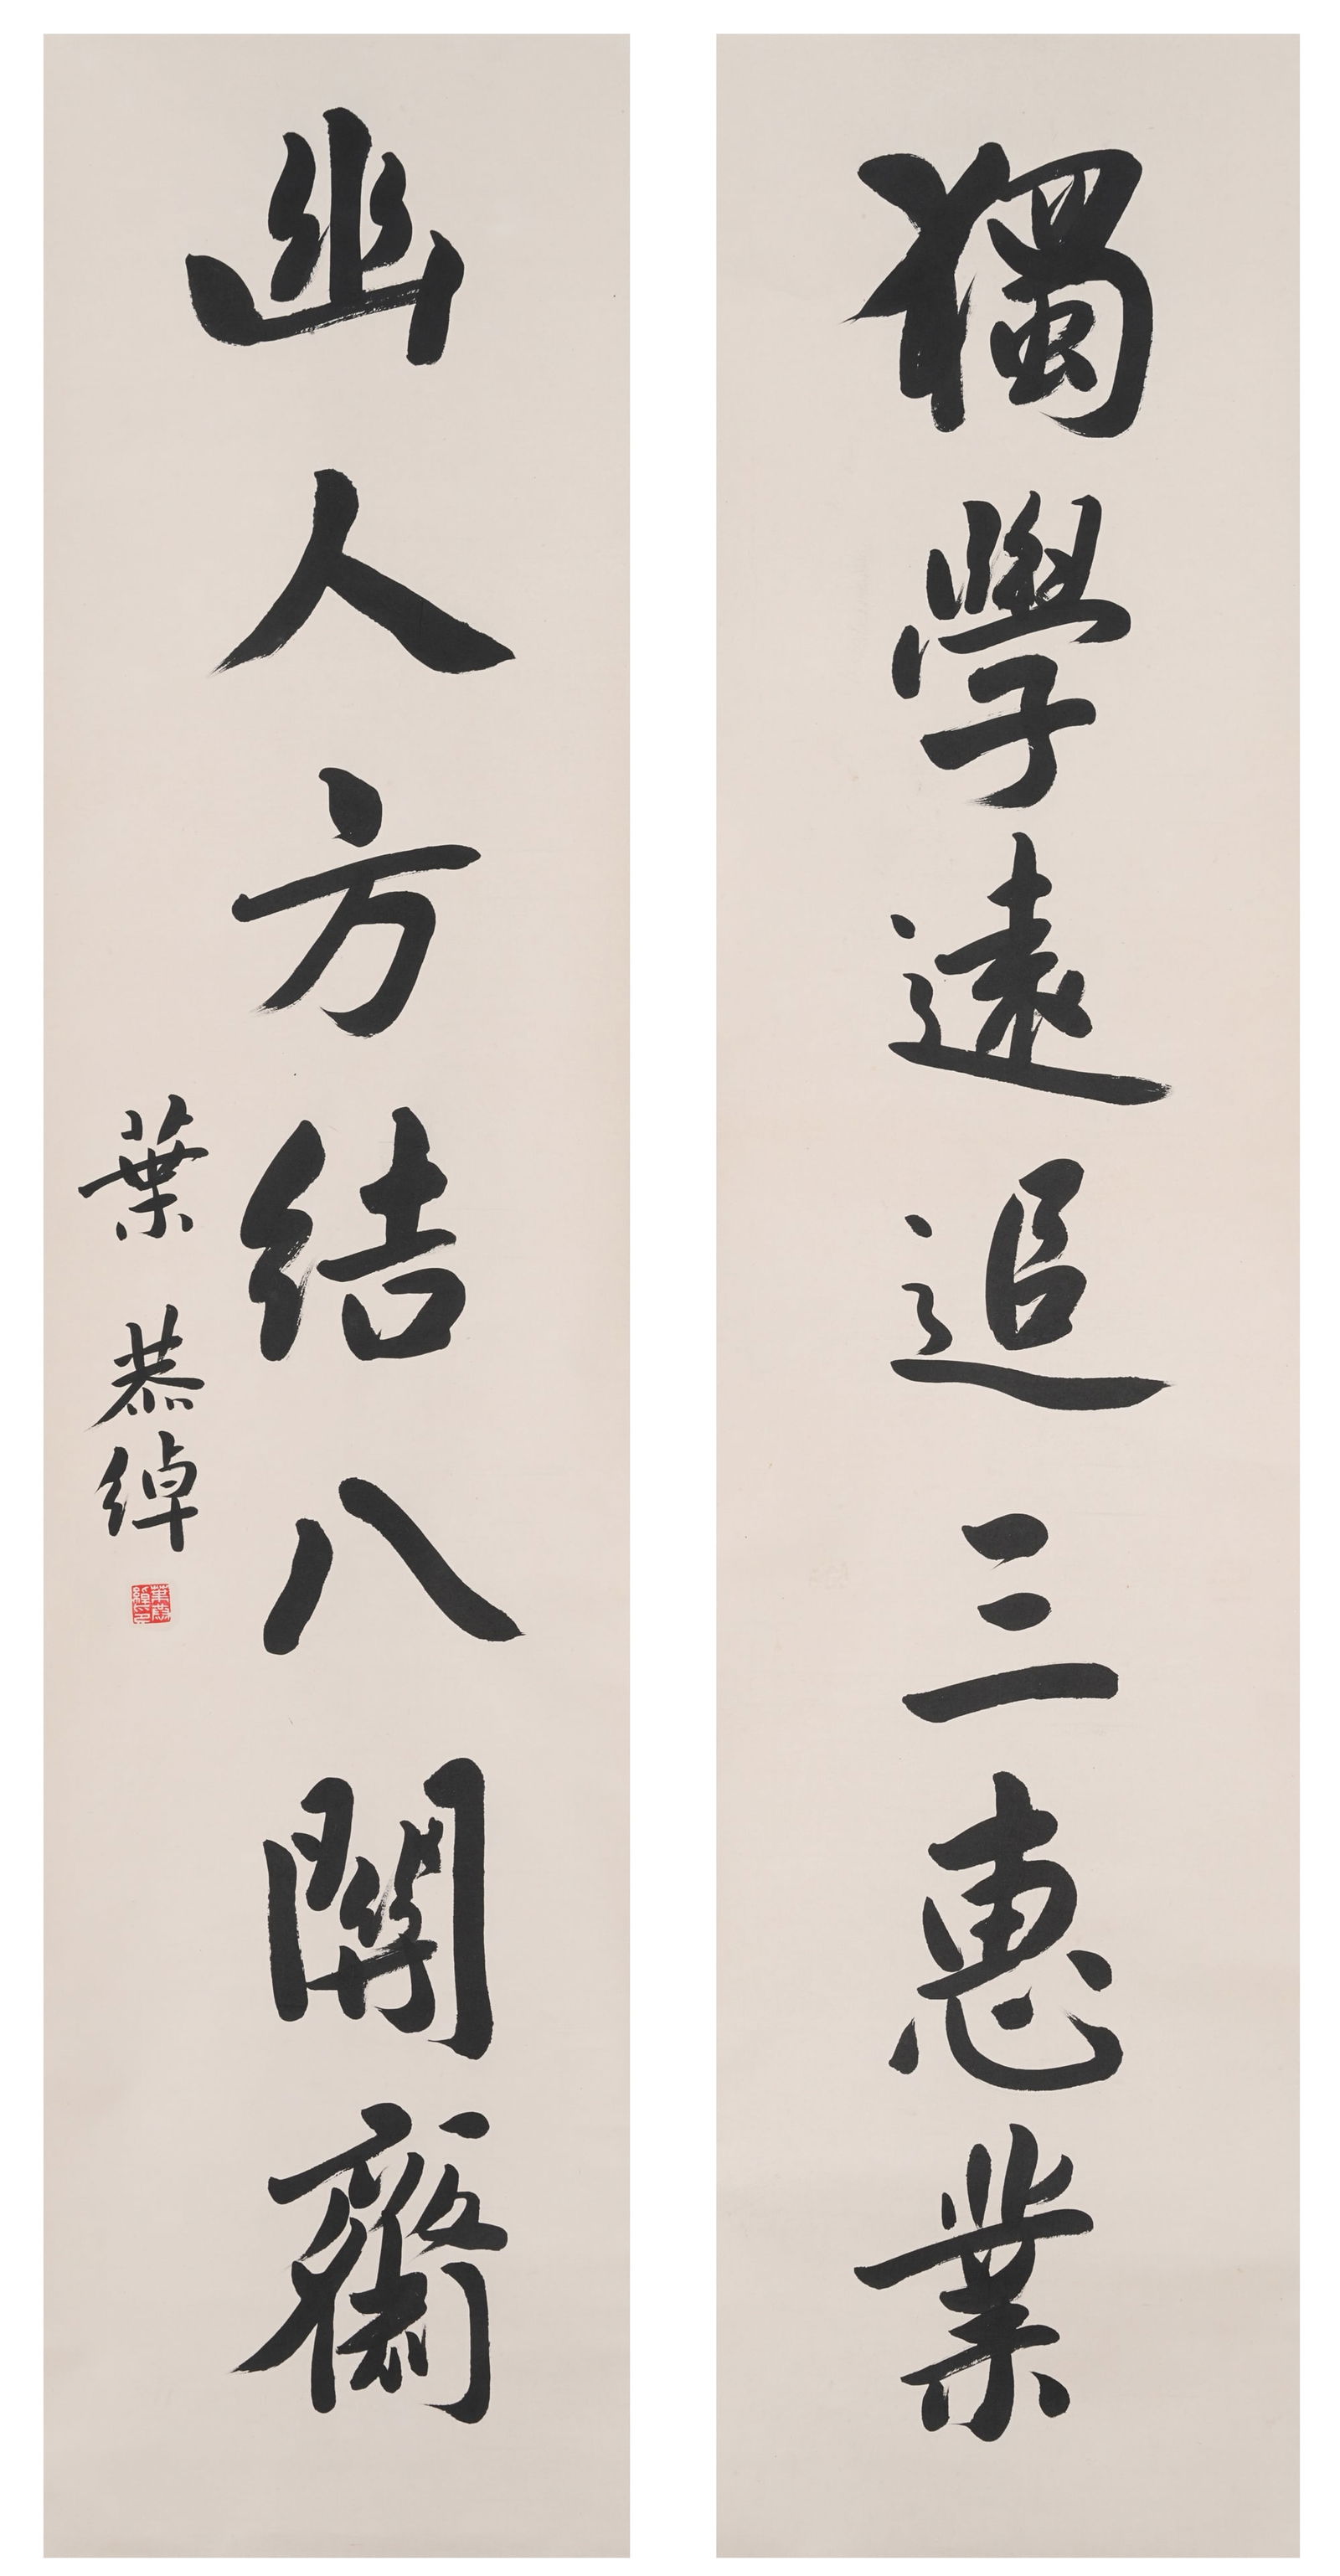 獨學遠追三惠業
幽人方結八關齋
葉恭綽
葉恭綽印